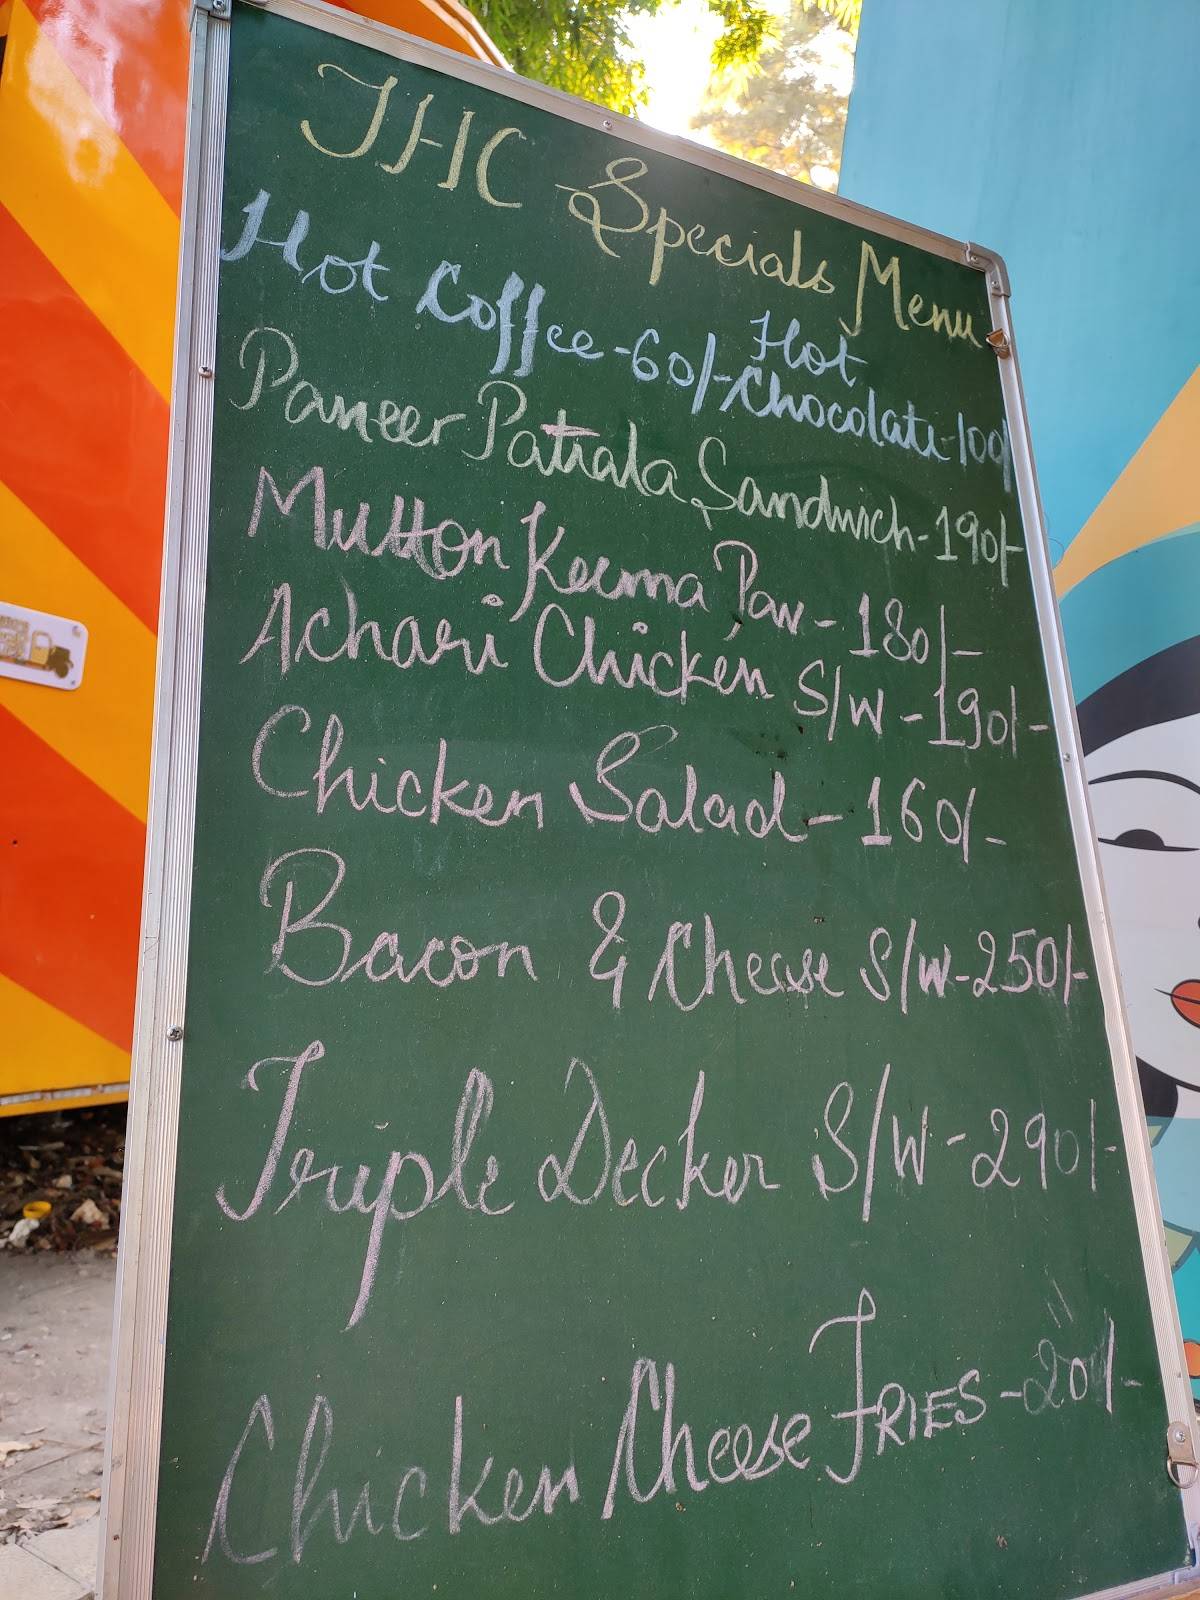 THC Specials Menu
Hot Coffee-60/- Hot Chocolate-100/
Paneer Patiala Sandwich-190/-
Mutton Keema Pav-180/-
Achari Chicken S/W-190/-
Chicken Salad-160/-
Bacon & Cheese S/W-250/-
Triple Decker S/W-290/-
Chicken Cheese FRIES-201/-